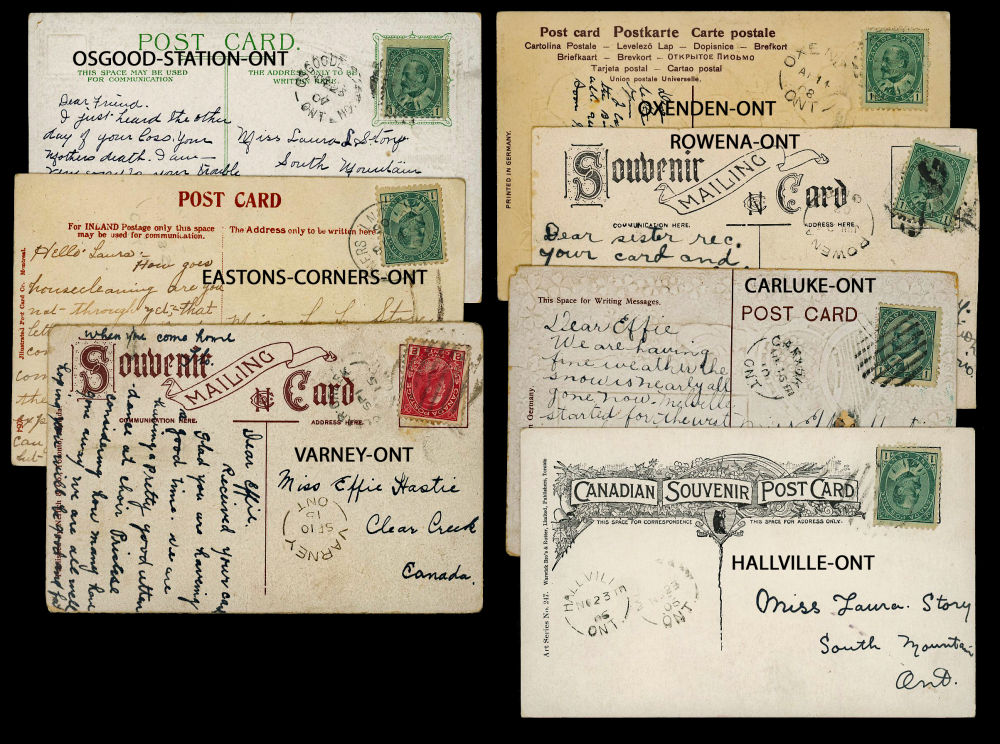 POST CARD.
OSGOOD-STATION-ONT
THIS SPACE MAY BE USED
FOR COMMUNICATION
THE ADDRESS ONLY TO BE
WRITTEN HERE.
Dear Friend.
I just heard the other
day of your loss. Your
Mothers death. I am
Miss Laura L Story
South Mountain
POST CARD
For INLAND Postage only this space
may be used for communication.
The Address only to be written here
Illustrated Post Card Co. Montreal.
Hello Laura:-
How goes
housecleaning are you
not through yet;-that
EASTONS-CORNERS-ONT
when you come home
Souvenir
MAILING
Card
COMMUNICATION HERE.
ADDRESS HERE.
CANADA POSTAGE
Dear Effie,
Received your card
Glad you are having
a good time. we are
having a pretty good
dance at their Princlose
considering how many have
gone away. we are all well
hoping you will be good and
VARNEY-ONT
VARNEY
SP 10
ONT
Miss Effie Hastie
Clear Creek
Canada.
Post card Postkarte Carte postale
Cartolina Postale – Levelező Lap – Dopisnice – Brefkort
Briefkaart – Brevkort – ОТКРЫТОЕ ПИСЬМО
Tarjeta postal – Cartao postal
Union postale Universelle.
PRINTED IN GERMANY.
OXENDEN-ONT
ROWENA-ONT
Souvenir
MAILING
Card
COMMUNICATION HERE.
ADDRESS HERE.
ROWENA
Dear sister rec.
your card and
CARLUKE-ONT
This Space for Writing Messages.
POST CARD
Germany.
Dear Effie
We are having
fine weather the
snow is nearly all
gone now. Melville
started for the west
CANADIAN SOUVENIR POST CARD
THIS SPACE FOR CORRESPONDENCE
THIS SPACE FOR ADDRESS ONLY.
Art Series No. 247. Warwick Bro's & Rutter, Limited, Publishers, Toronto
HALLVILLE-ONT
HALLVILLE
NO 23
05
ONT
Miss Laura. Story
South Mountain
Ont.